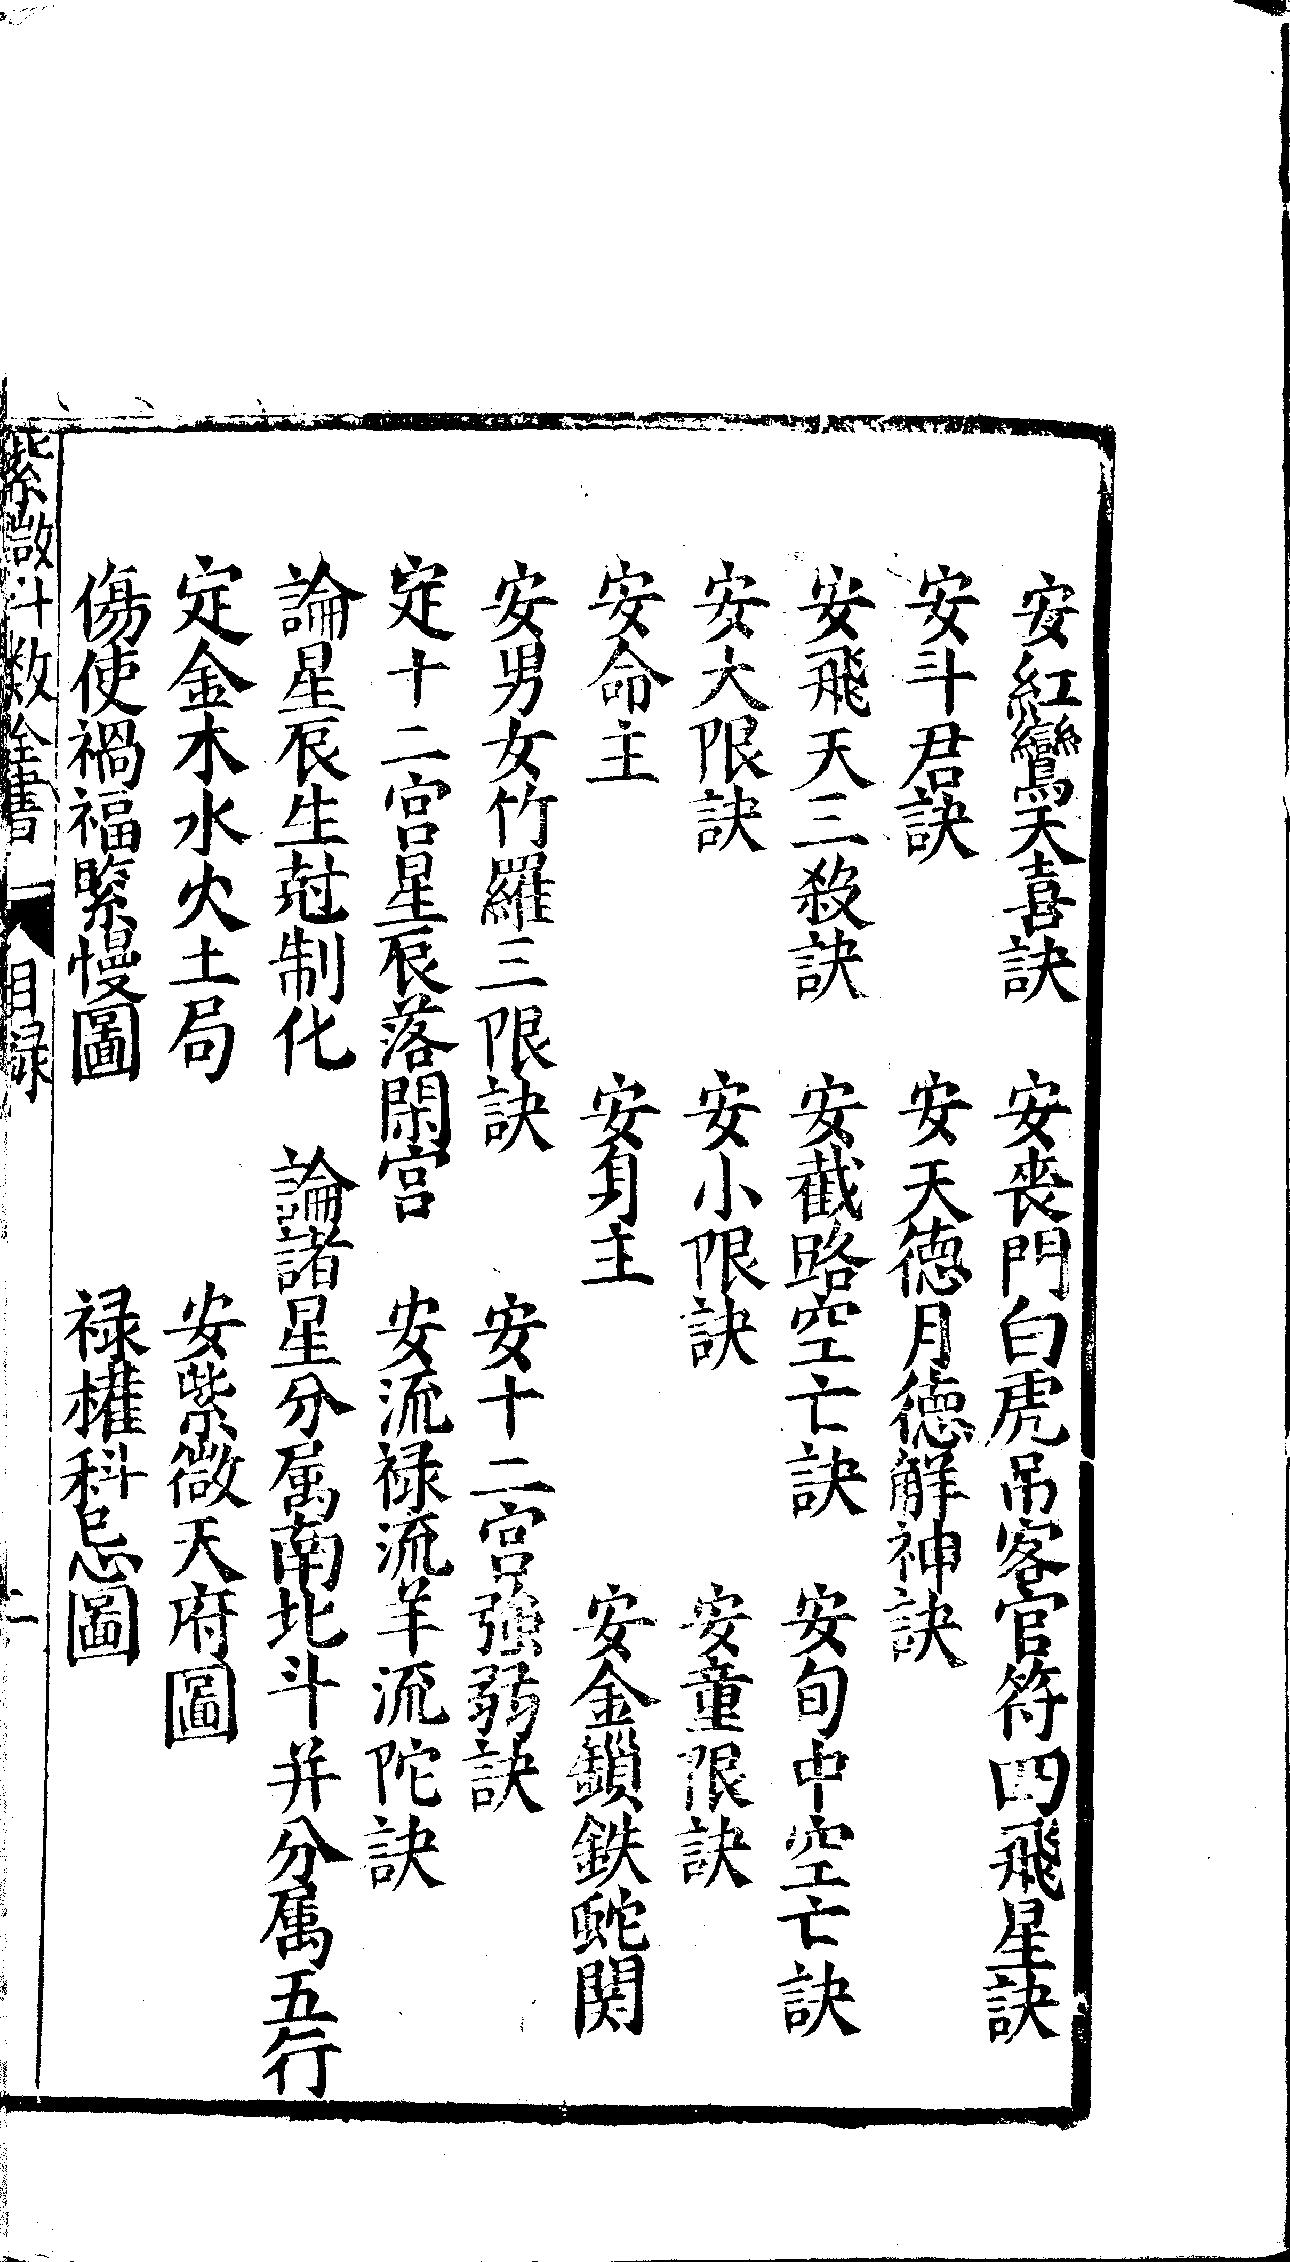 安紅鸞天喜訣　安丧門白虎吊客官符四飛星訣
安斗君訣　安天德月德解神訣
安飛天三殺訣　安截路空亡訣　安旬中空亡訣
安大限訣　安小限訣　安童限訣
安命主　安身主　安金鎖鉄蛇関
安男女竹羅三限訣　安十二宮強弱訣
定十二宮星辰落閑宮　安流禄流羊流陀訣
論星辰生尅制化　論諸星分属南北斗并分属五行
定金木水火土局　安紫微天府圖
傷使禍福緊慢圖　禄權科忌圖
紫微斗数全書　目録　二